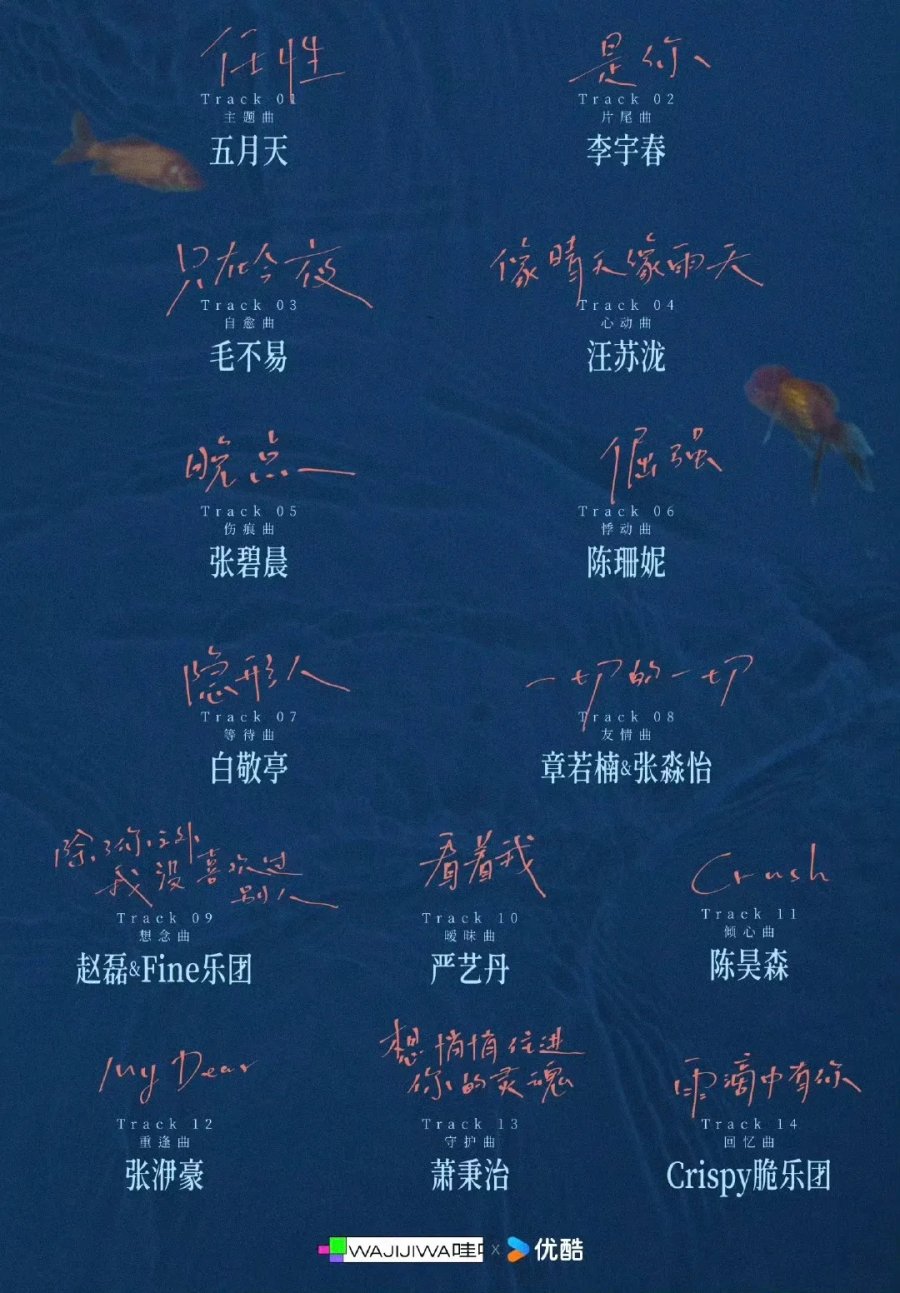 任性
Track 01
主题曲
五月天
是你
Track 02
片尾曲
李宇春
只在今夜
Track 03
自愈曲
毛不易
像晴天像雨天
Track 04
心动曲
汪苏泷
晚点
Track 05
伤痕曲
张碧晨
倔强
Track 06
悸动曲
陈珊妮
隐形人
Track 07
等待曲
白敬亭
一切的一切
Track 08
友情曲
章若楠&张淼怡
除了你之外
我没喜欢过
别人
Track 09
想念曲
赵磊&Fine乐团
看着我
Track 10
暧昧曲
严艺丹
Crush
Track 11
倾心曲
陈昊森
My Dear
Track 12
重逢曲
张洢豪
想悄悄住进
你的灵魂
Track 13
守护曲
萧秉治
雨滴中有你
Track 14
回忆曲
Crispy脆乐团
WAJIJIWA哇 x 优酷